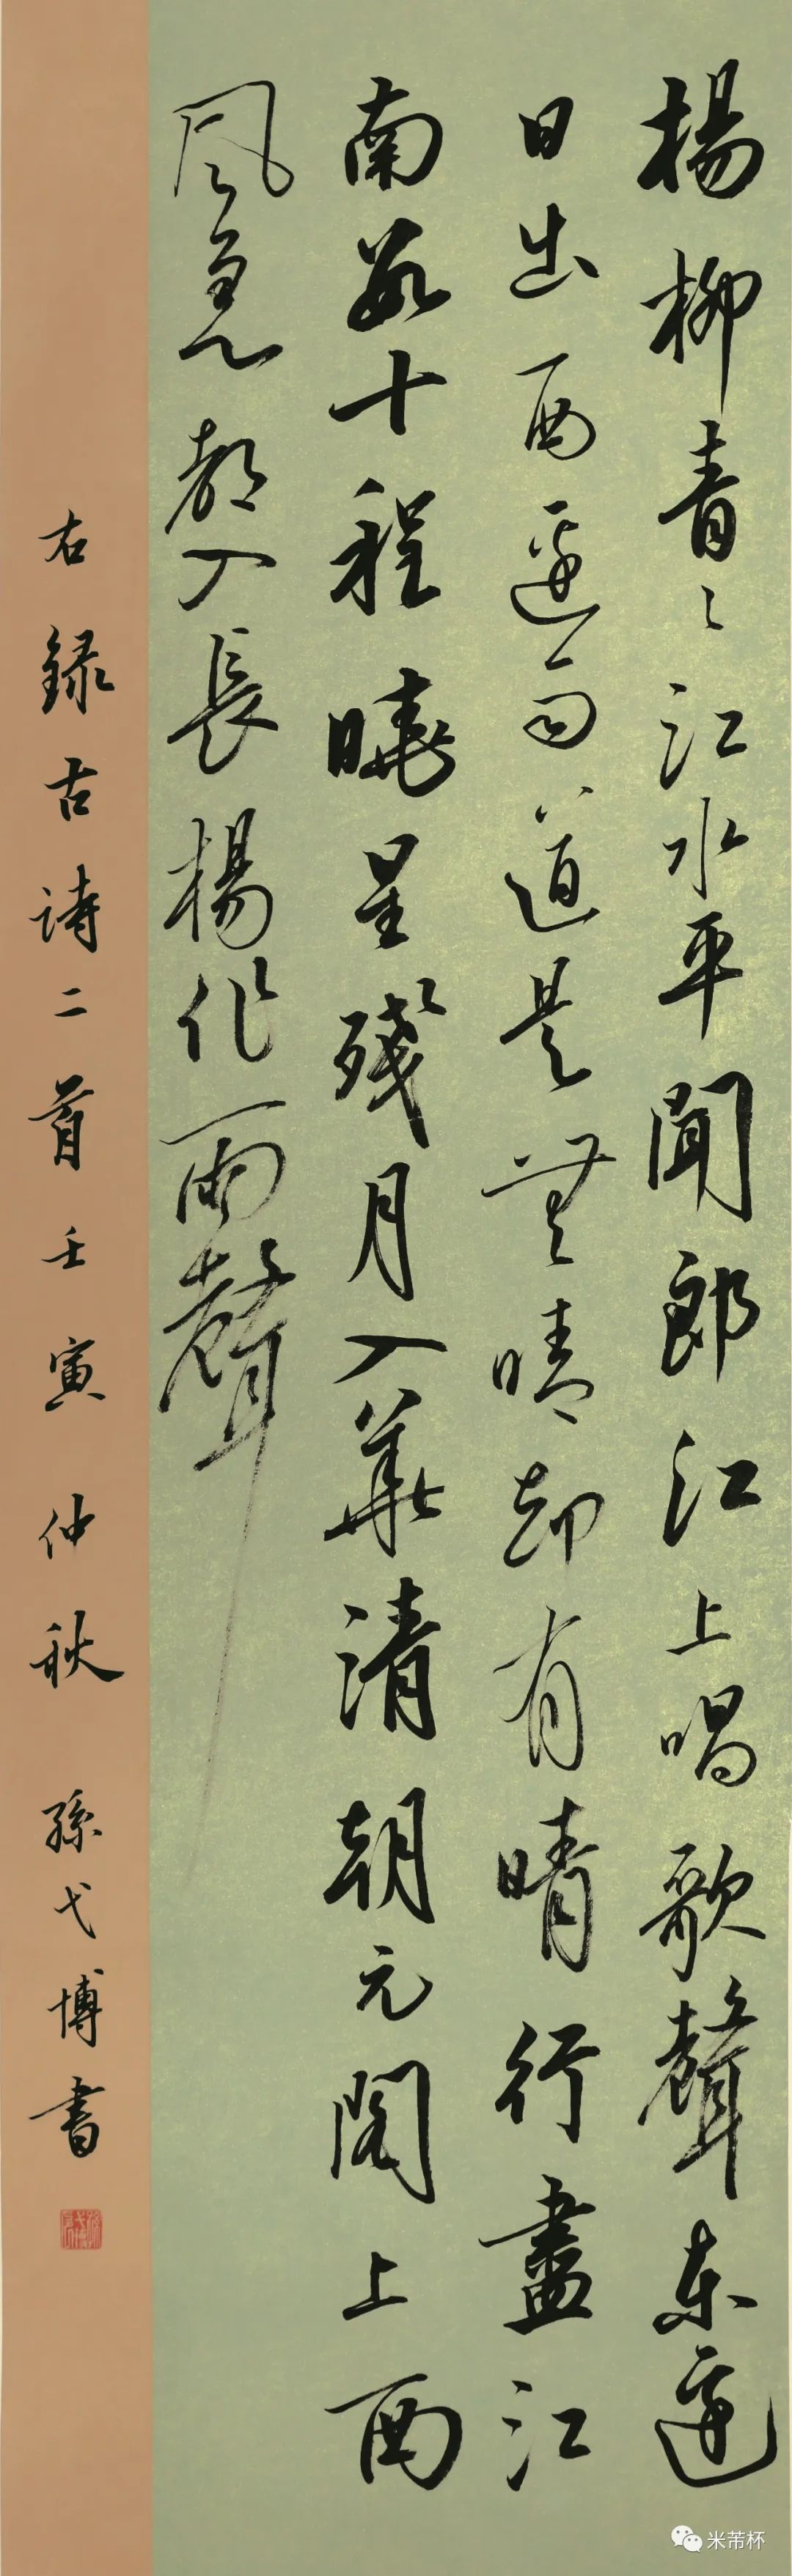 楊柳青〻江水平聞郎江上唱歌聲東邊
日出西邊雨道是無晴却有晴行盡江
南數十程曉星殘月入華清朝元閣上西
風急都入長楊作雨聲
右録古詩二首壬寅仲秋孫弋博書
米芾杯